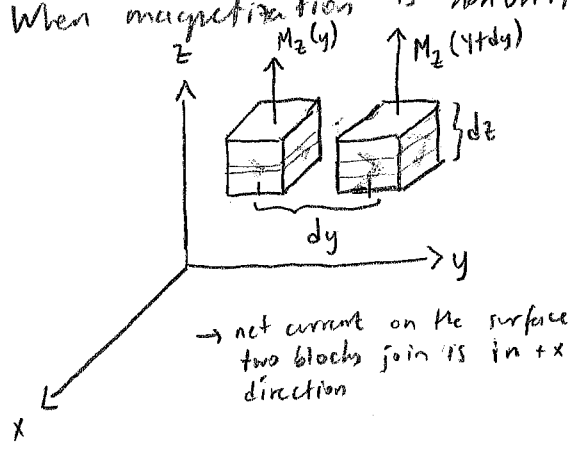 When magnetization is
z
M_z(y)
M_z(y+dy)
}dz
dy
y
→ net current on the surface
two blocks join is in +x
direction
x